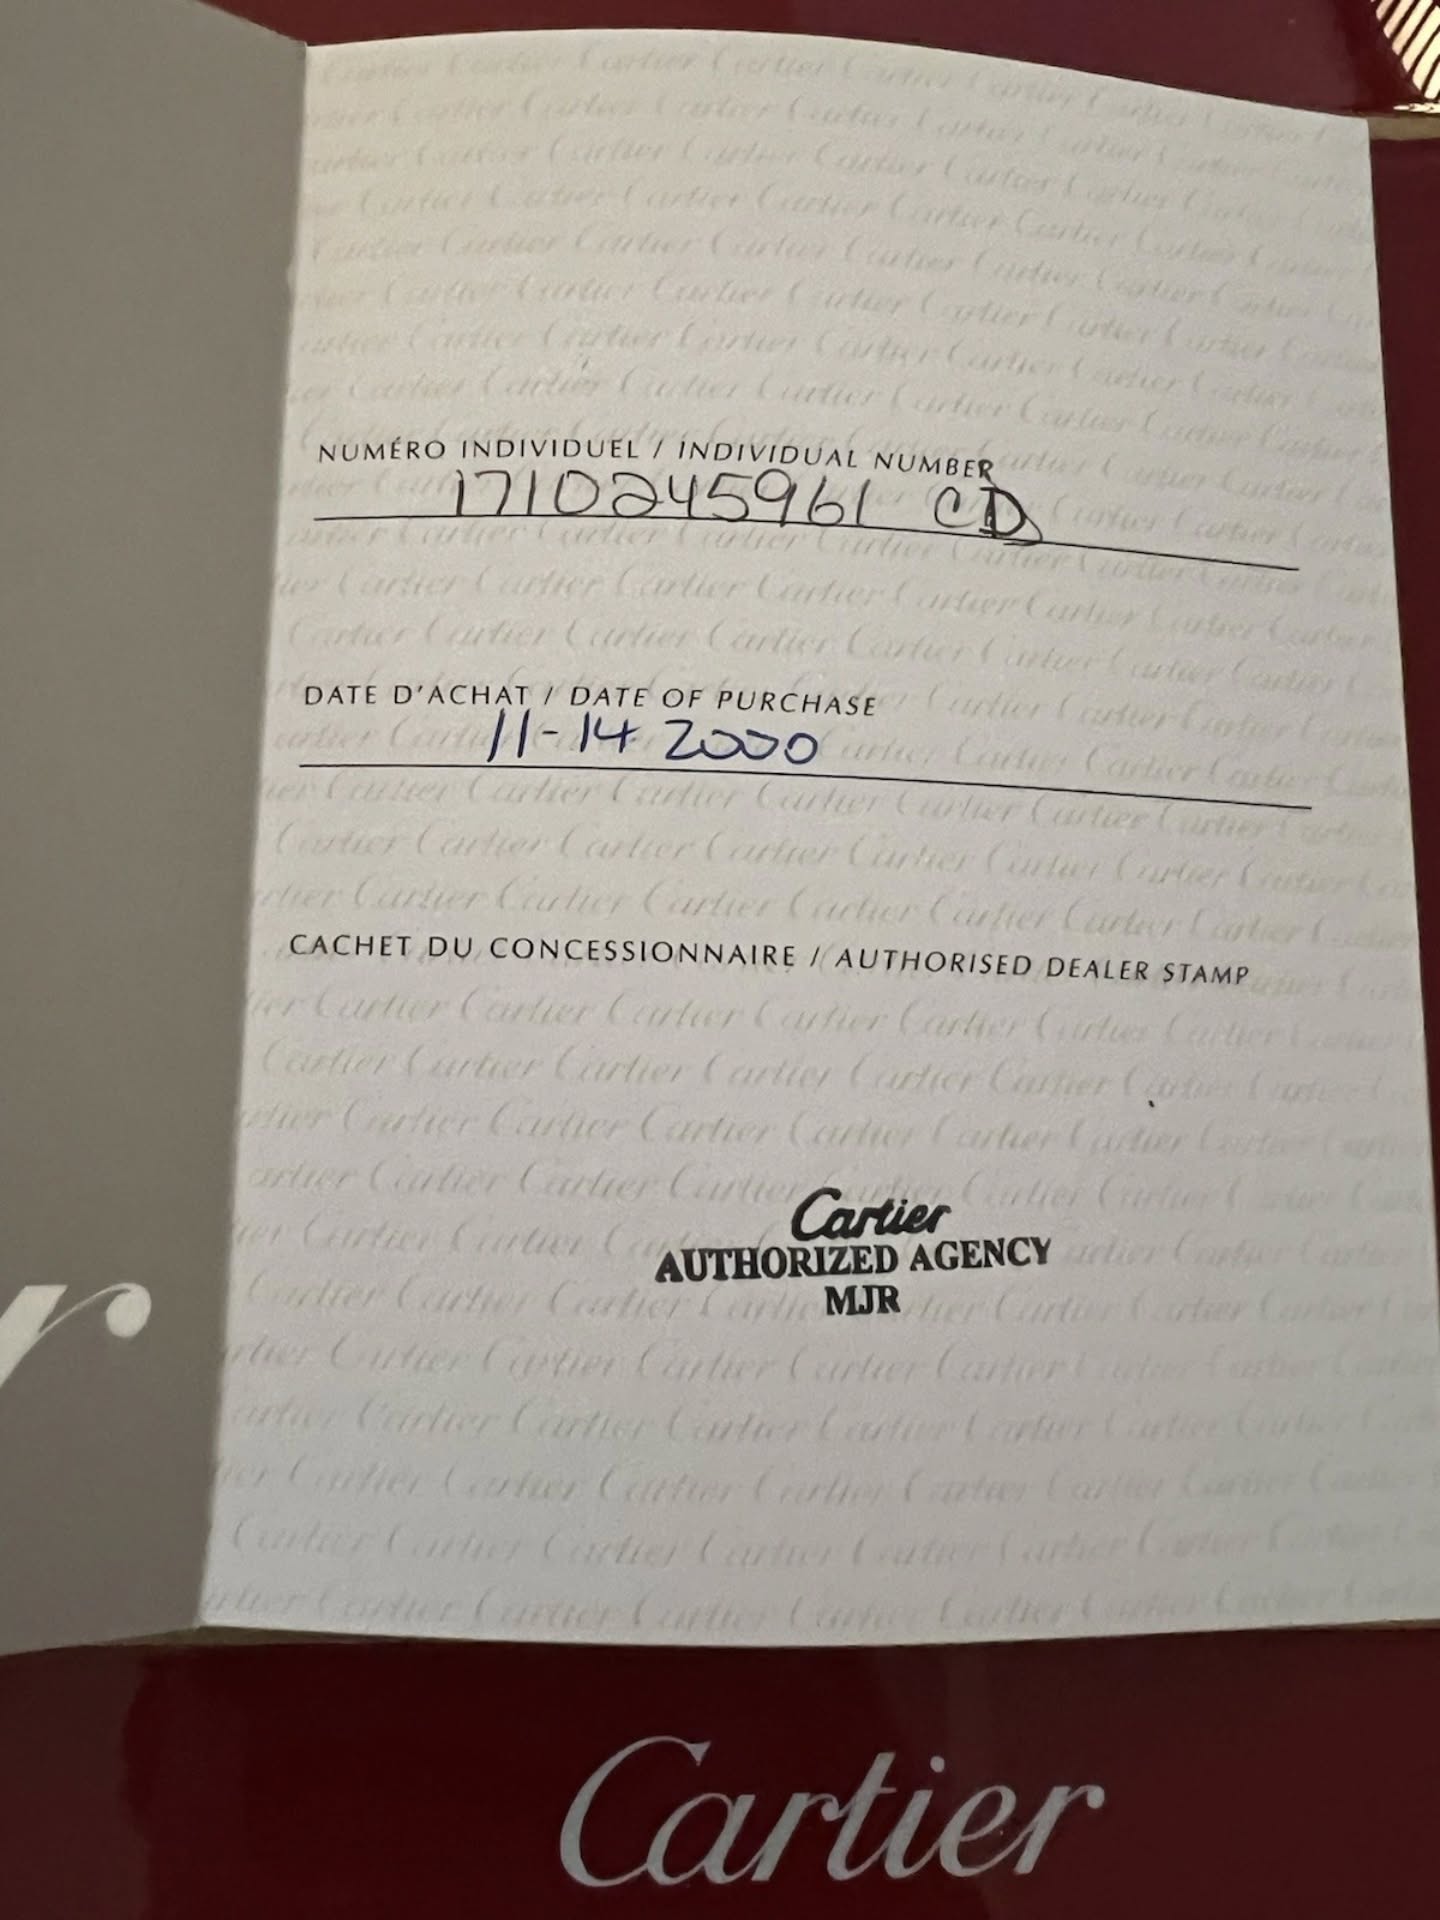 NUMÉRO INDIVIDUEL / INDIVIDUAL NUMBER
1710245961 CD
DATE D'ACHAT / DATE OF PURCHASE
11-14 2000
CACHET DU CONCESSIONNAIRE / AUTHORISED DEALER STAMP
Cartier
AUTHORIZED AGENCY
MJR
r
Cartier